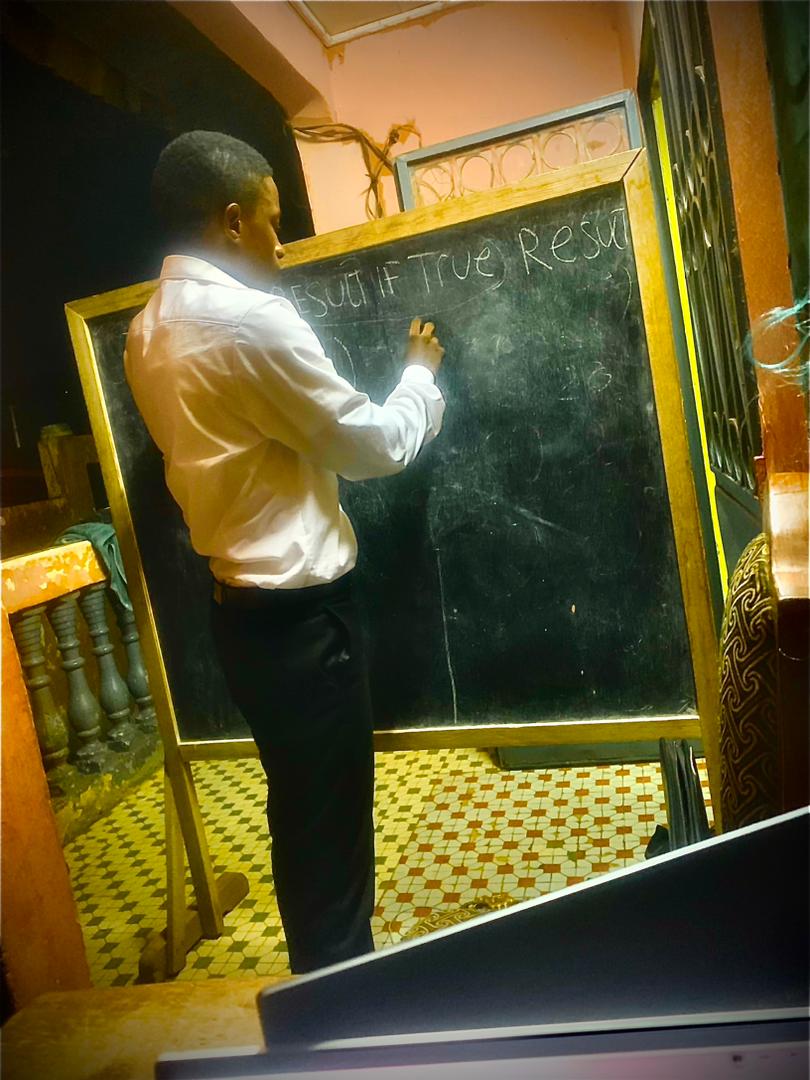 RESULT IF True, Resul